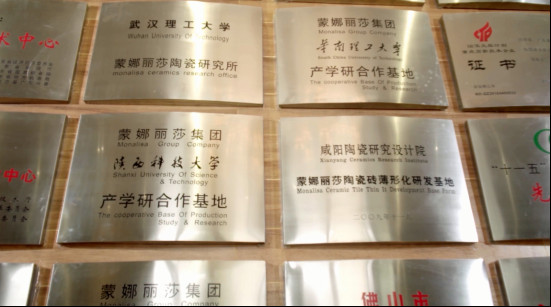 术中心
武汉理工大学
Wuhan University Of Technology
蒙娜丽莎陶瓷研究所
monalisa ceramics research office
蒙娜丽莎集团
Monalisa Group Company
华南理工大学
South China University of Technology
产学研合作基地
The cooperative Base Of Production
Study & Research
证书
中心
蒙娜丽莎集团
Monalisa Group Company
陕西科技大学
Shanxi University Of Science
& Technology
产学研合作基地
The cooperative Base Of Production
Study & Research
咸阳陶瓷研究设计院
Xianyang Ceramics Research Institute
蒙娜丽莎陶瓷砖薄形化研发基地
Monalisa Ceramic Tile Thin It Development Base Form
二〇〇九年十一
"十一五
先
蒙娜丽莎集团
Monalisa Group Company
佛山市